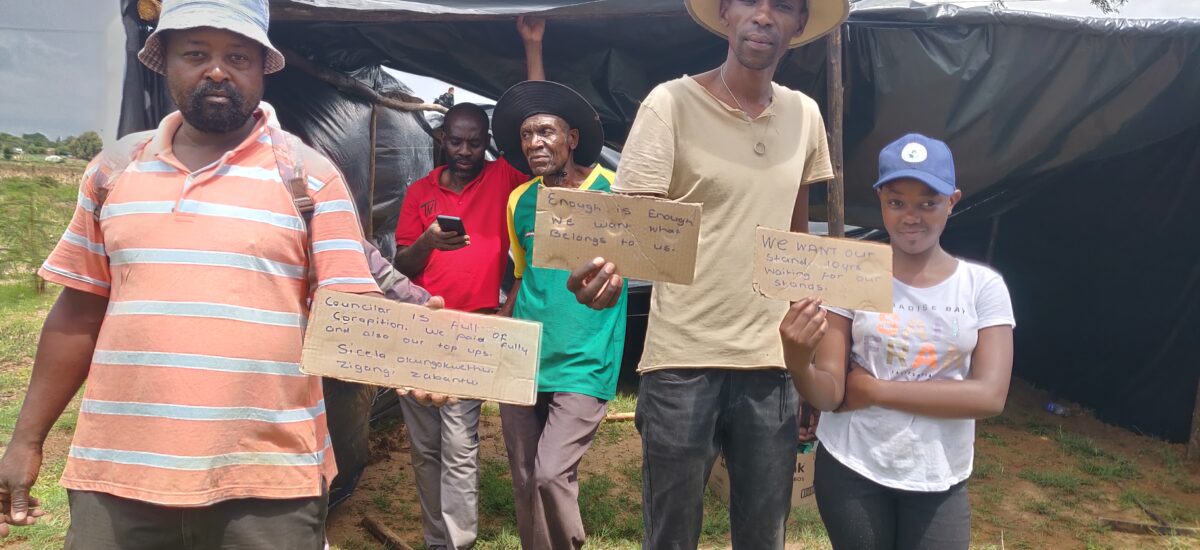 Councilar is full of
Corapition. We paid fully
and also our top ups.
Sicela okungokwethu.
Zigang, Zabantu
Enough is Enough
We want what
Belongs to us.
WE WANT OUR
Stand, 10yrs
Waiting for our
Stands.